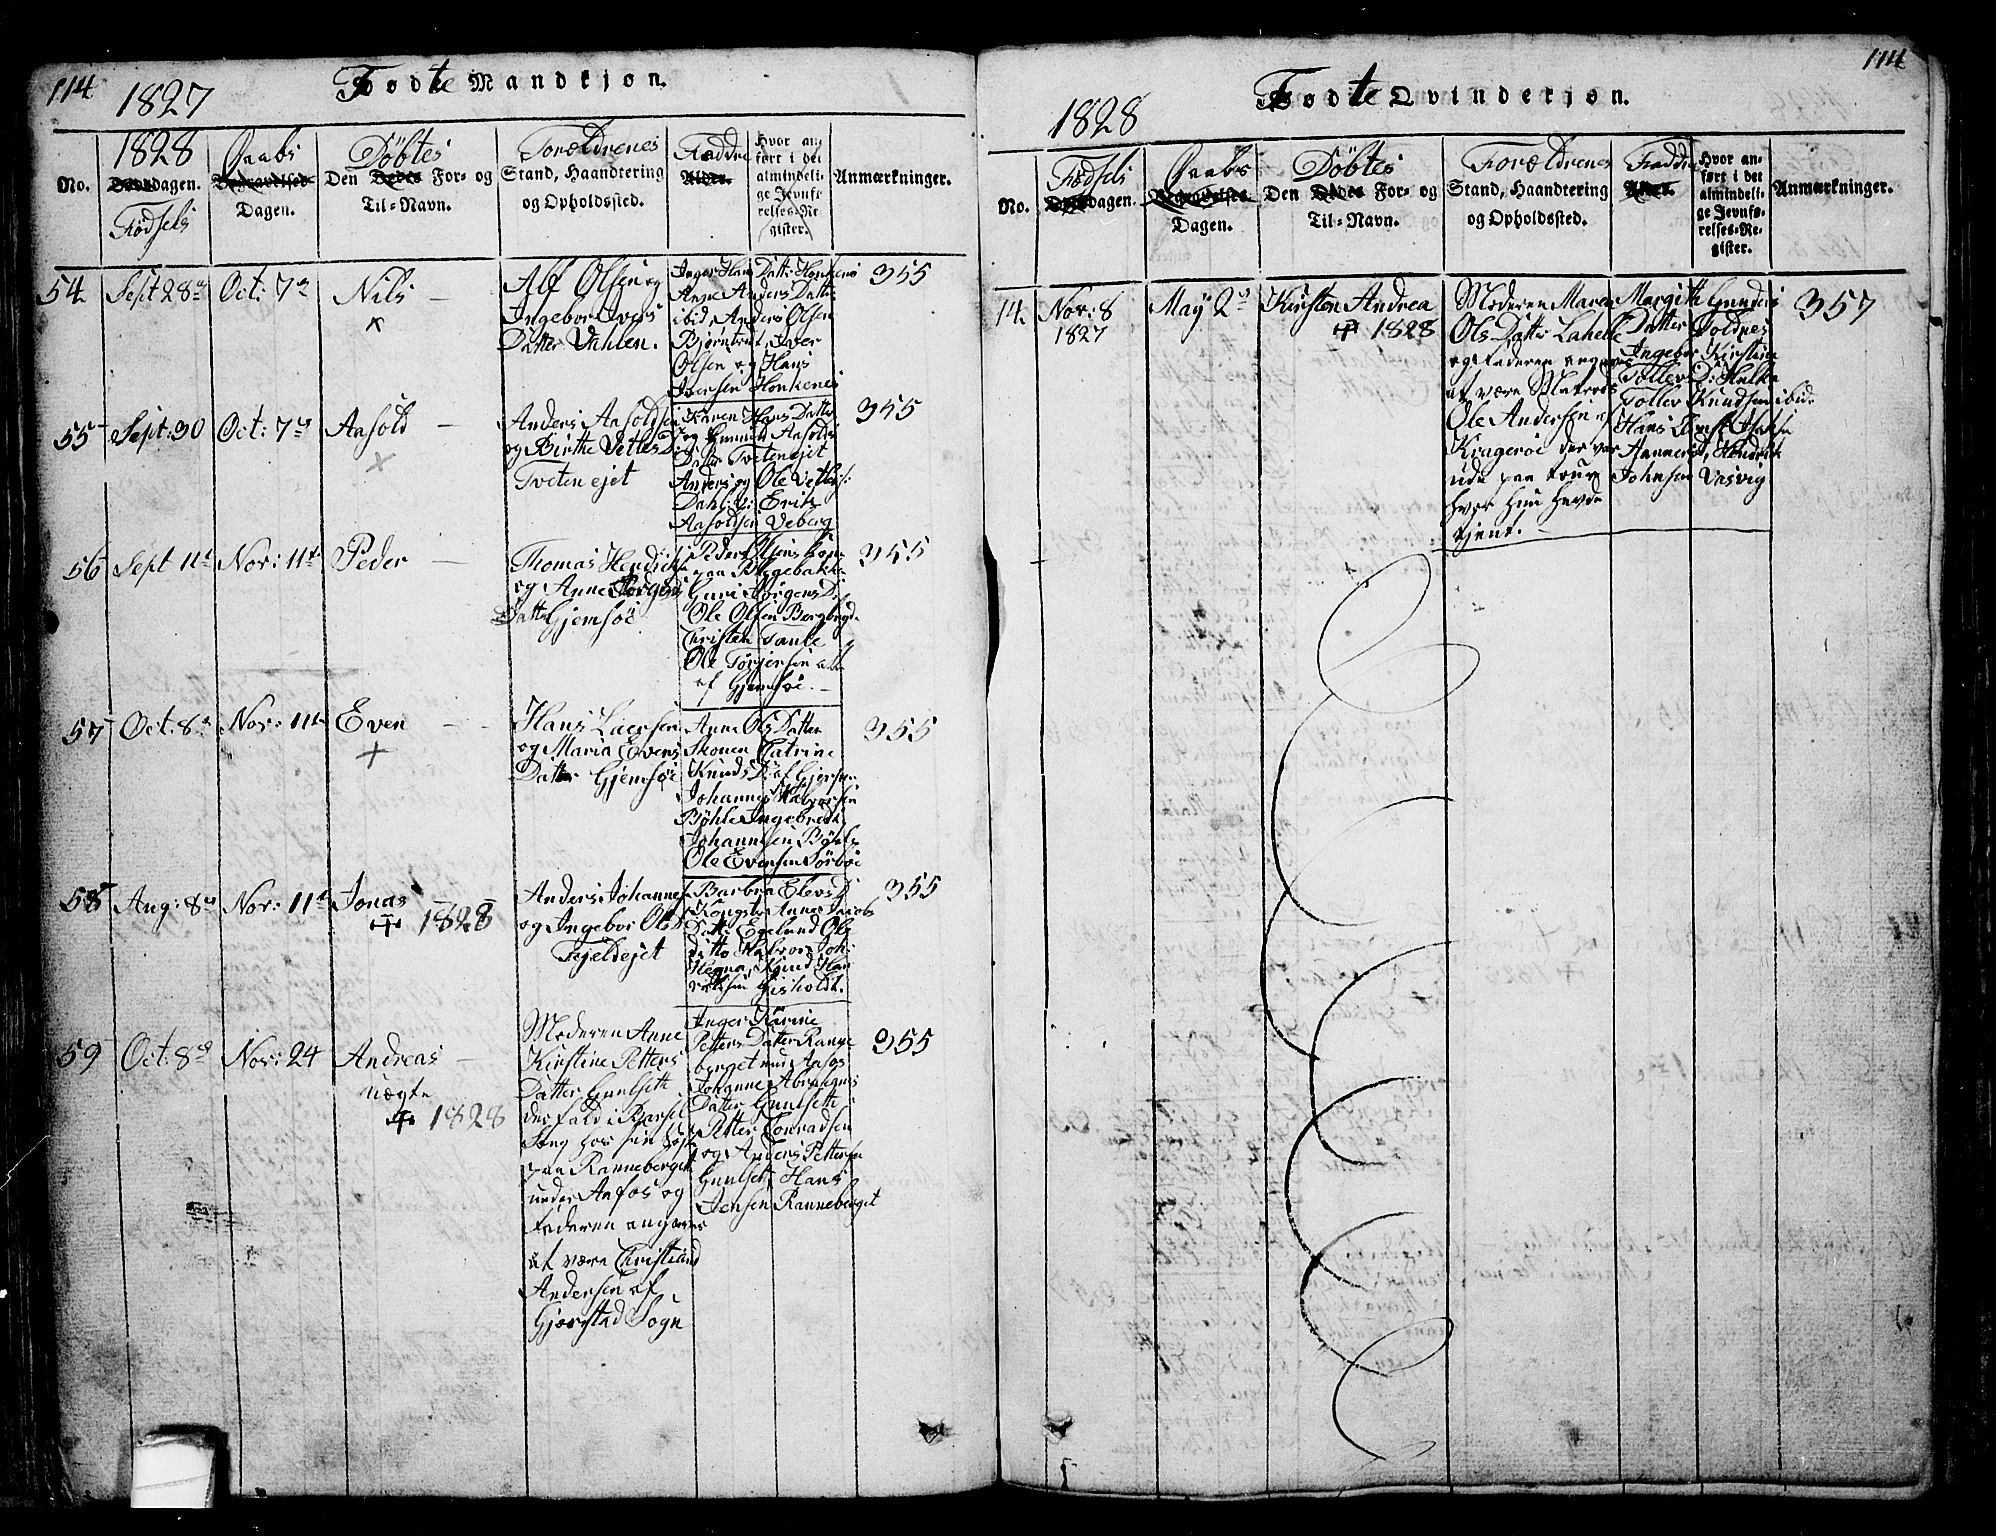 114 1827 Fødte Mandkjøn.
1828
No.
Dagen.
Fødsels
Daabs
Dagen.
Døbtes
Den For= og
Til=Navn.
Forældrenes
Stand, Haandtering
og Opholdssted.
Faddre
Hvor an=
ført i det
almindeli=
ge Jevnfø=
relses=Re=
gister.
Anmærkninger.
54. Sept 28 Oct: 7 Nils
Alf Olsen og
Ingebor Ivers
Datter Vahlen.
Inger Hans Datter Honkenes
Anne Anders Datter
ibid, Anders Olsen
Iver
Olsen og Hans
Iversen Honkenes
355
55 Sept: 30 Oct: 7 Aasold
Anders Aasoldsen
og Birthe Vettes D
Tveten ejet
Karen Hans Datter
og Gunnild Aasolds
Datter Tveten ejet
Anders og Ole Vettes
Dahl: Erik
Aasoldsen Veberg
345
56 Sept 11 Nov: 11 Peder
Thomas Hendrichs
og Anne Jørgens
Datter Gjemsøe
Peder Olsens Kone
paa Bøgebakke
Guri Jørgens D:
Ole Olsen
Christen Tanke
Ole Torjersen alle
af Gjemsøe.
355
57 Oct: 8 Nov: 11 Even
Hans Larsen
og Maria Evens
Datter Gjemsøe
Anne Ols Datter
Skonen Catrine
Knuds D: af Gjemsøe
Johannes Halvorsen
Bøhle Ingebret
Johannesen Bøhle
Ole Evensen Sørboe
355
58 Aug: 8 Nov: 11 Jonas
1828
Anders Johannes
og Ingebor Ols D
Fjeldejet
Barbra Elevs D
Anne Jacobs
Datter Egelund Ole
ditto Halvor Joh:
Hegna, Knud Hen
riksen Gisholdt.
355
59 Oct: 8 Nov: 24 Andreas
uægte
1828
Moderen Anne
Kirstine Petters
Datter Gunlseth
der fald i Barsel
Seng hos sin
paa Ranneberget
under Aafos og
Faderen angives
at være Christian
Andersen af
Gjerestad Sogn
Inger Karine
Petters Datter Ranne
berget under Aafos
Johanne Abrahams
Datter Gunlseth
Petter Conradsen
og Anders Pettersen
Gunlset, Hans
Jensen Ranneberget
355
1828 Fødte Qvindekjøn. 114
No.
Fødsels
Dagen.
Daabs
Dagen.
Døbtes
Den For= og
Til=Navn.
Forældrenes
Stand, Haandtering
og Opholdssted.
Faddre
Hvor an=
ført i det
almindeli=
ge Jevnfø=
relses=Re=
gister.
Anmærkninger.
14. Nov: 8
1827
May 2
Kirsten Andrea
1828
Moderen Maren
Ols Datter Lahelle
og Faderen angives
at være Matros
Ole Andersen af
Kragerøe der var
ude paa
hvor hun havde
tjent.
Margith Gunders
Datter Doldnes
Ingebor Kirstine
Tollevs D: Hulka
Tollev Knudsen ibid:
Hans
Hannerød, Hendrik
Johnsen Vasvig
357